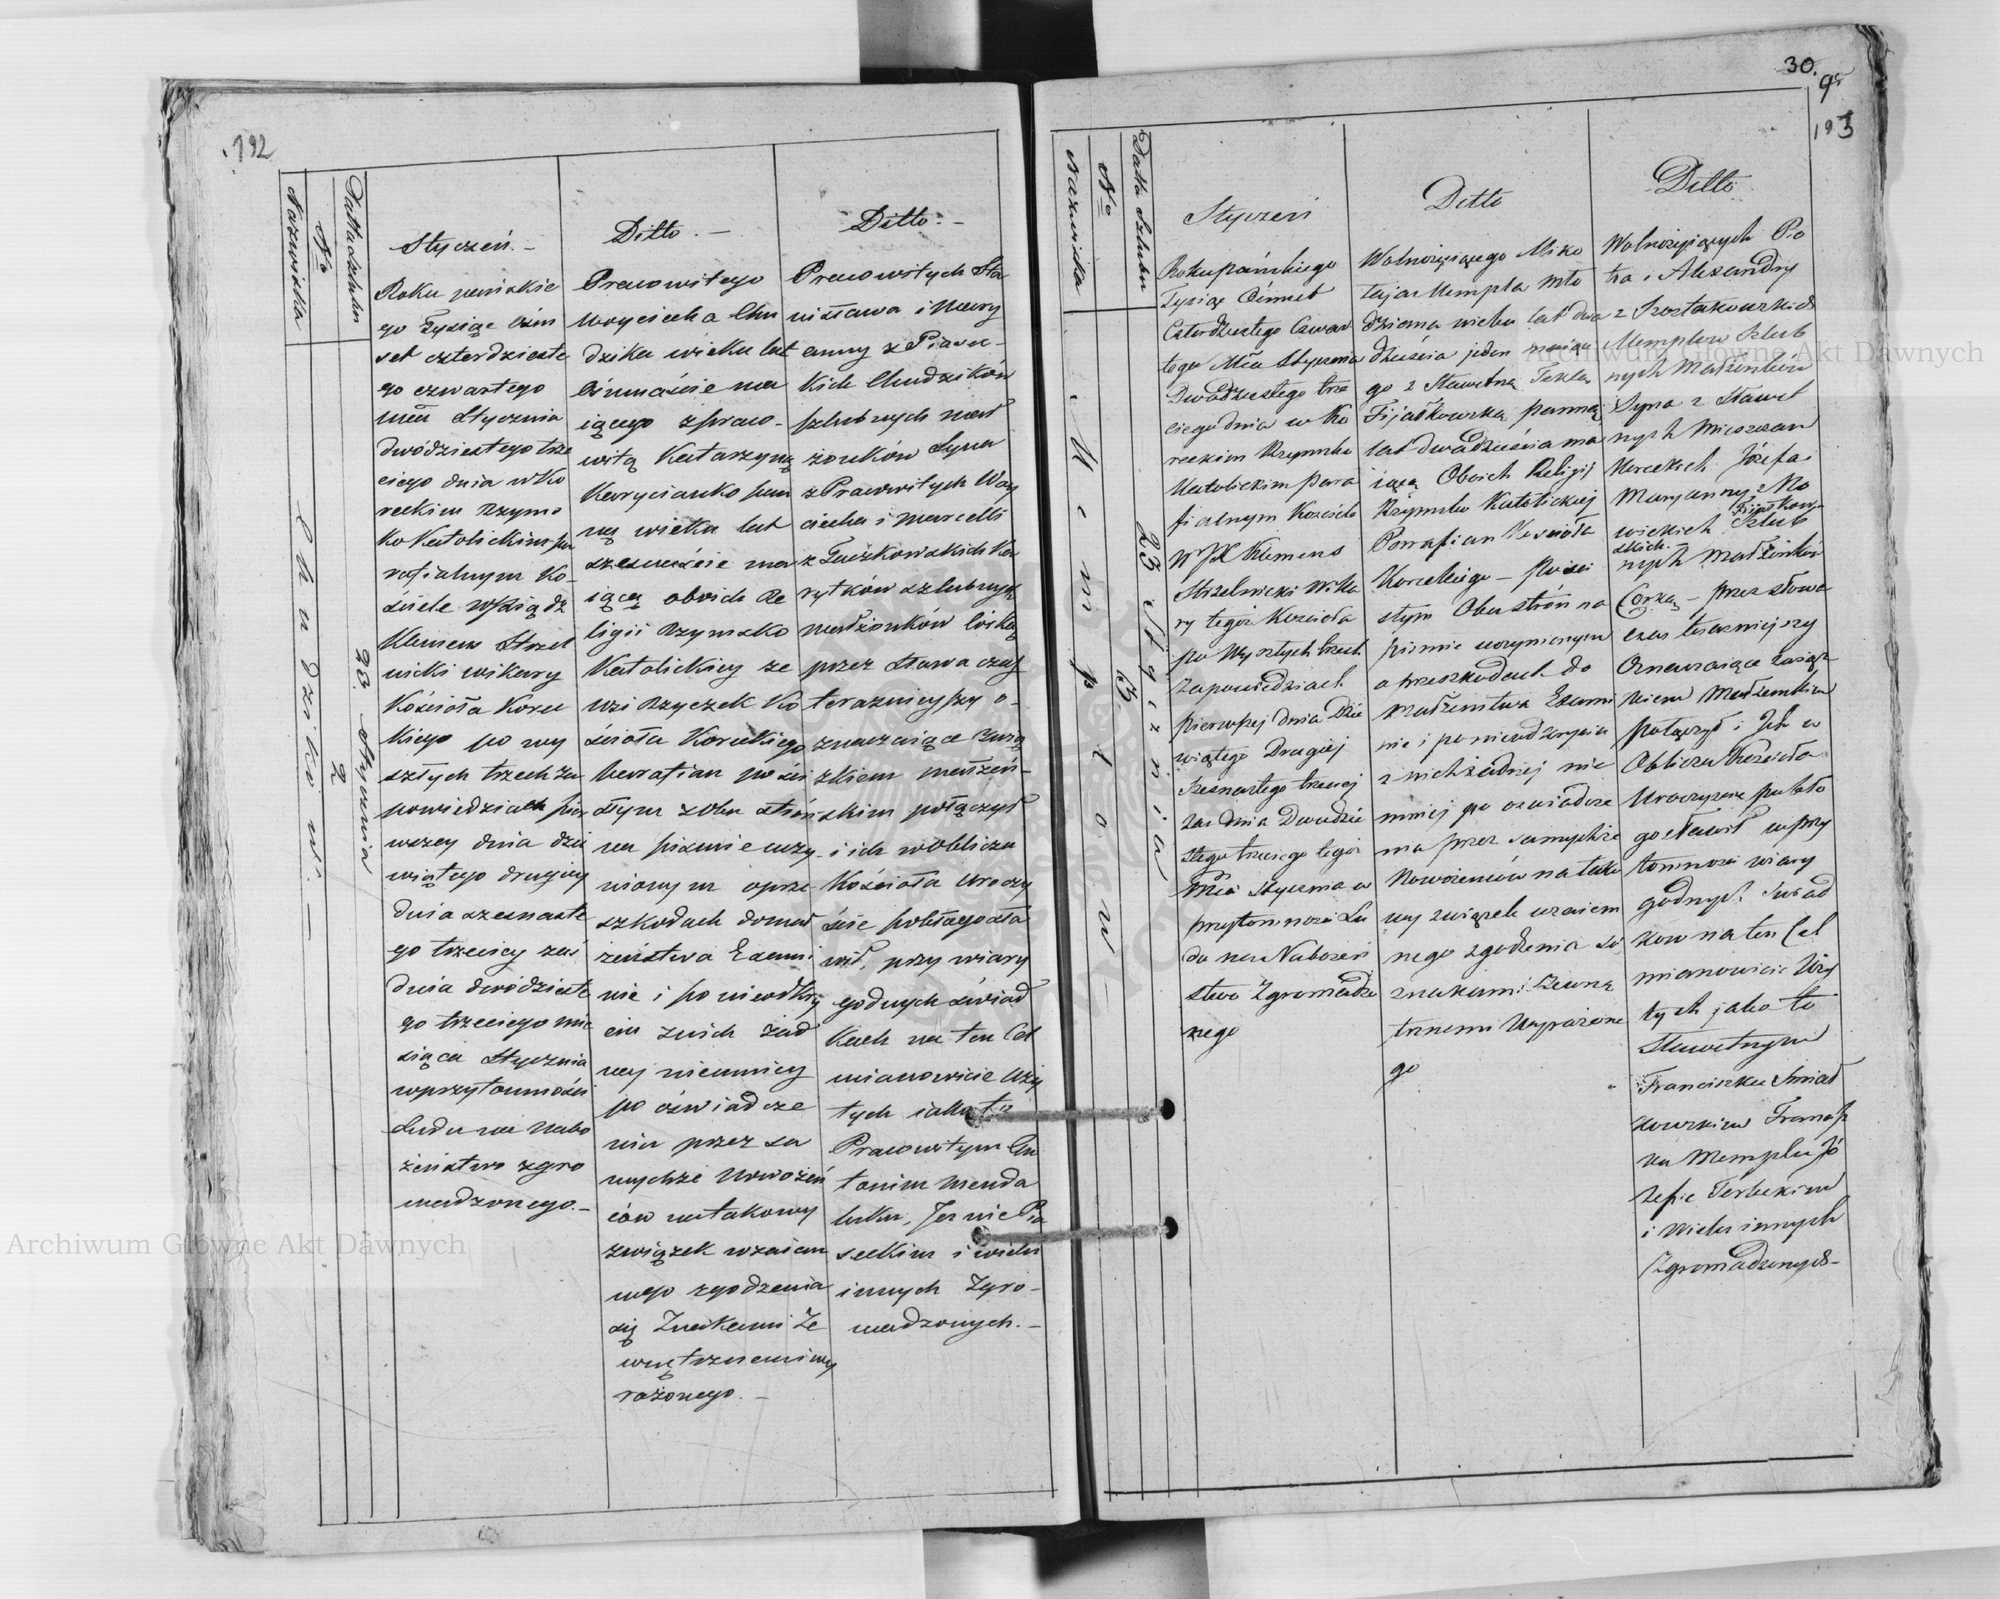 192
Nazwiska
No
Datta szlubu
Chudzików. —
2
23 Stycznia
Styczeń. –
Roku pańskie
go Tysiąc Ośm
set czterdzieste
go czwartego
mca Stycznia
dwódziestego trze
ciego dnia w Ko
reckim Rzyms
ko Katolickim pa
rafialnym Ko-
ściele W Xiądz
Klemens Strzel
nicki wikary
Kościoła Korec
kiego po wy
szłych trzech Za
powiedziach pier
wszey dnia dzie
wiątego drugiey
dnia szesnaste
go trzeciey zaś
dnia dwódzieste
go trzeciego mie
siąca Stycznia
w przytomności
Ludu na nabo
żeństwo zgro
madzonego. –
Ditto. –
Pracowitego
Woyciecha Chu
dzika wieku lat
Ośmnaście ma
iącego z praco-
witą Katarzyną
Karycianko pan
ną wieku lat
szesnaście ma
iącą oboich Re
ligii Rzymsko
Katolickiey ze
wsi Rzyczek Ko
ścioła Koreckiego
Parafian po ści
słym z Obu stron
na piśmie uczy-
nionym o prze
szkodach do mał
żeństwa Exami
nie i po niewdkry
ciu z nich żad
ney niemniey
po oświadcze
niu przez sa
mychże Nowożeń
ców na takowy
związek wzaiem
nego zgodzenia
się Znakami Ze
wnętrznemi wy
rażonego. –
Ditto. –
Pracowitych Sta
nisława i Mary
anny z Piasec-
kich Chudzików
szlubnych mał
żonków Syna
z Pracowitych Woy
ciecha i Marcelli
z Taczkowskich Ka
rytków szlubnych
małżonków Córką
przez słowa czas
teraznieyszy o-
znaczaiące Zwią
zkiem małżeń-
skim połączył
i ich w Obliczu
Kościoła Uroczy
ście pobłogosła
wił, przy wiary
godnych świad
kach na ten Cel
mianowicie Uży
tych iako to
Pracowitym An
tonim
Janie Pia
seckim i wielu
innych Zgro-
madzonych. –
30.
193
Nazwiska
No
Datta Szlubu
Memplów –
3
23 Stycznia
Styczeń
Roku pańskiego
Tysiąc Ośmset
Czterdziestego Czwar
tego Mca Stycznia
Dwadziestego trze
ciego dnia w Ko
reckim Rzymsko
Katolickim para
fialnym Kościele
W JX Klemens
Strzelnicki Wika
ry tegoż Kościoła
po Wyszłych trzech
Zapowiedziach
pierwszej dnia Dzie
wiątego Drugiej
Szesnastego trzeciej
zaś dnia Dwudzie
stego trzeciego tegoż
Mca Stycznia w
przytomności Lu
du na Nabożeń
stwo Zgromadzo
nego
Ditto
Wolnożyiącego Miko
łaja Mempla mło
dziana wieku lat dwa
dzieścia jeden maiące
go z Sławetną Teklą
Fijałkowską panną
lat dwadzieścia ma
iącą Oboich Religij
Rzymsko Katolickiej
Parafian Kościoła
Koreckiego – po ści
słym Obu stron na
piśmie uczynionym
o przeszkodach do
małżeństwa Exami
nie i po niewdkryciu
z nich żadnej nie
mniej po oświadcze
niu przez samychże
Nowożeńców na tako
wy związek wzaiem
nego zgodzenia się
znakami Zewnę
trznemi Wyrażone
go
Ditto
Wolnożyiących Pio
tra i Alexandry
z Szostakowskich
Memplów Szlub
nych Małżonków
Syna z Sławet
nych Mieszczan
Koreckich Józefa i
Maryanny z No
wickich Fijałkow
skich Szlub
nych Małżonków
Córką – przez słowa
czas teraźniejszy
Oznaczaiące związ
kiem Małżeńskim
połączył i Ich w
Obliczu Kościoła
Uroczyście pobło
gosławił w przy
tomności wiary
godnych Świad
ków na ten Cel
mianowicie Uży
tych jako to
Sławetnym
Franciszku Śmiał
kowskim Francisz
ku Memplu Jó
zefie Terleckim
i Wielu innych
Zgromadzonych –
Archiwum Główne Akt Dawnych
Archiwum Główne Akt Dawnych